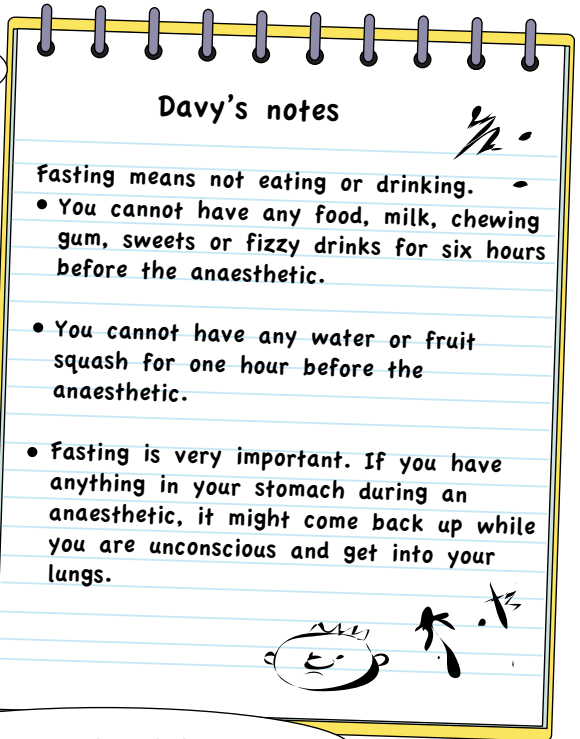 Davy's notes
Fasting means not eating or drinking.
• You cannot have any food, milk, chewing
gum, sweets or fizzy drinks for six hours
before the anaesthetic.
• You cannot have any water or fruit
squash for one hour before the
anaesthetic.
• Fasting is very important. If you have
anything in your stomach during an
anaesthetic, it might come back up while
you are unconscious and get into your
lungs.